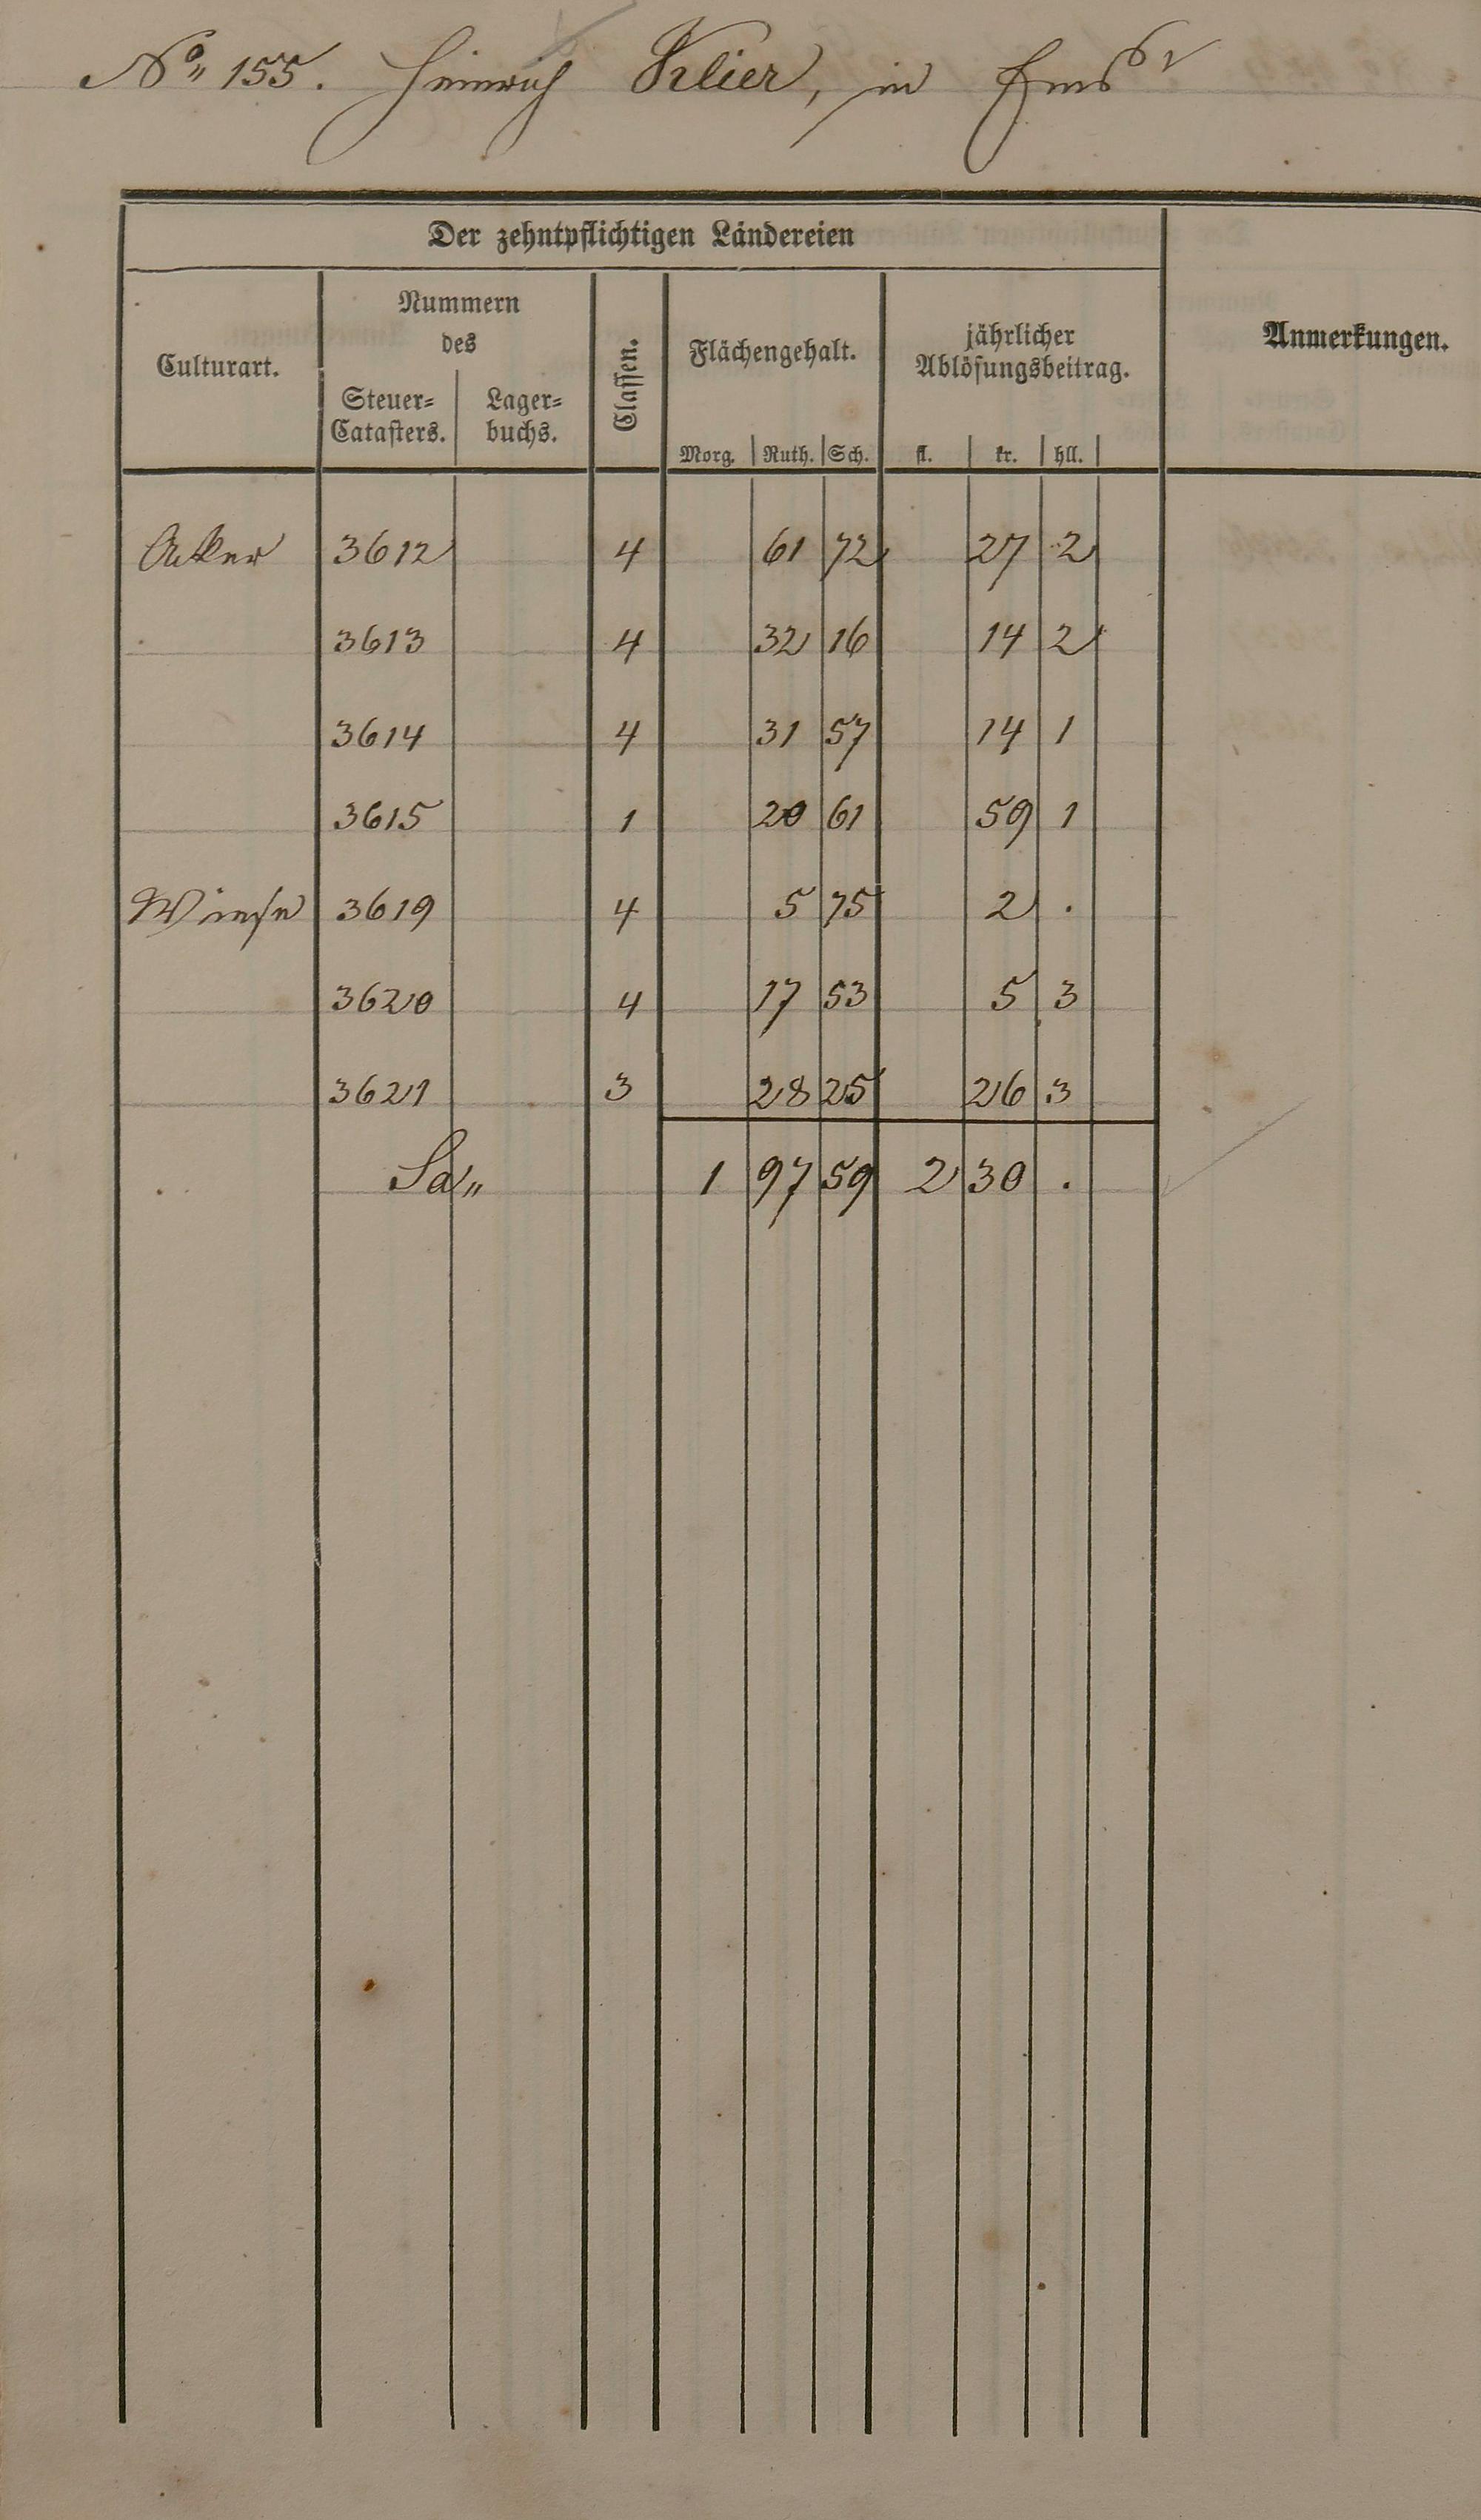 No 155. Heinrich Klier, in Ems
Der zehntpflichtigen Ländereien
Culturart. Nummern des Classen. Flächengehalt. jährlicher Ablösungsbeitrag. Anmerkungen.
Steuer=Catasters. Lager=buchs. Morg. Ruth. Sch. fl. kr. hll.
Acker 3612 4 61 72 27 2
3613 4 32 16 14 2
3614 4 31 57 14 1
3615 1 20 61 59 1
Wiese 3619 4 5 75 2 .
3620 4 17 53 5 3
3621 3 28 25 26 3
Sa 1 97 59 2 30 .